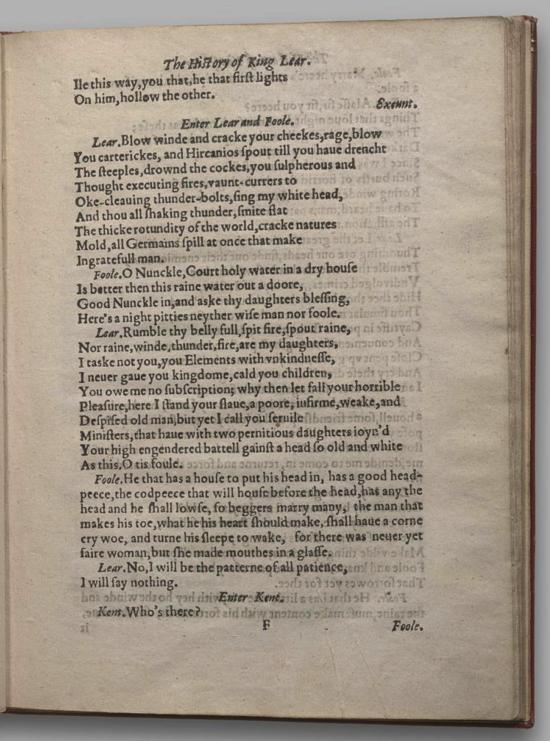 The History of King Lear.
Ile this way,you that,he that first lights
On him,hollow the other.
Exeunt.
Enter Lear and Foole.
Lear.Blow winde and cracke your cheekes,rage,blow
You carterickes, and Hircanios spout till you haue drencht
The steeples,drownd the cockes,you sulpherous and
Thought executing fires,vaunt-currers to
Oke-cleauing thunder-bolts,sing my white head,
And thou all shaking thunder,smite flat
The thicke rotundity of the world,cracke natures
Mold,all Germains spill at once that make
Ingratefull man.
Foole.O Nunckle,Court holy water in a dry house
Is better then this raine water out a doore,
Good Nunckle in,and aske thy daughters blessing,
Here's a night pitties neyther wise man nor foole.
Lear.Rumble thy belly full,spit fire,spout raine,
Nor raine,winde,thunder,fire,are my daughters,
I taske not you,you Elements with vnkindnesse,
I neuer gaue you kingdome,cald you children,
You owe me no subscription; why then let fall your horrible
Pleasure,here I stand your slaue,a poore, infirme,weake,and
Despised old man,but yet I call you seruile
Ministers,that haue with two pernitious daughters ioyn'd
Your high engendered battell gainst a head so old and white
As this,O tis foule.
Foole.He that has a house to put his head in, has a good head-
peece,the codpeece that will house before the head,has any the
head and he shall lowse, so beggers marry many, the man that
makes his toe,what he his heart should make, shall haue a corne
cry woe, and turne his sleepe to wake, for there was neuer yet
faire woman,but she made mouthes in a glasse.
Lear.No,I will be the patterne of all patience,
I will say nothing.
Enter Kent.
Kent.Who's there?
F
Foole.